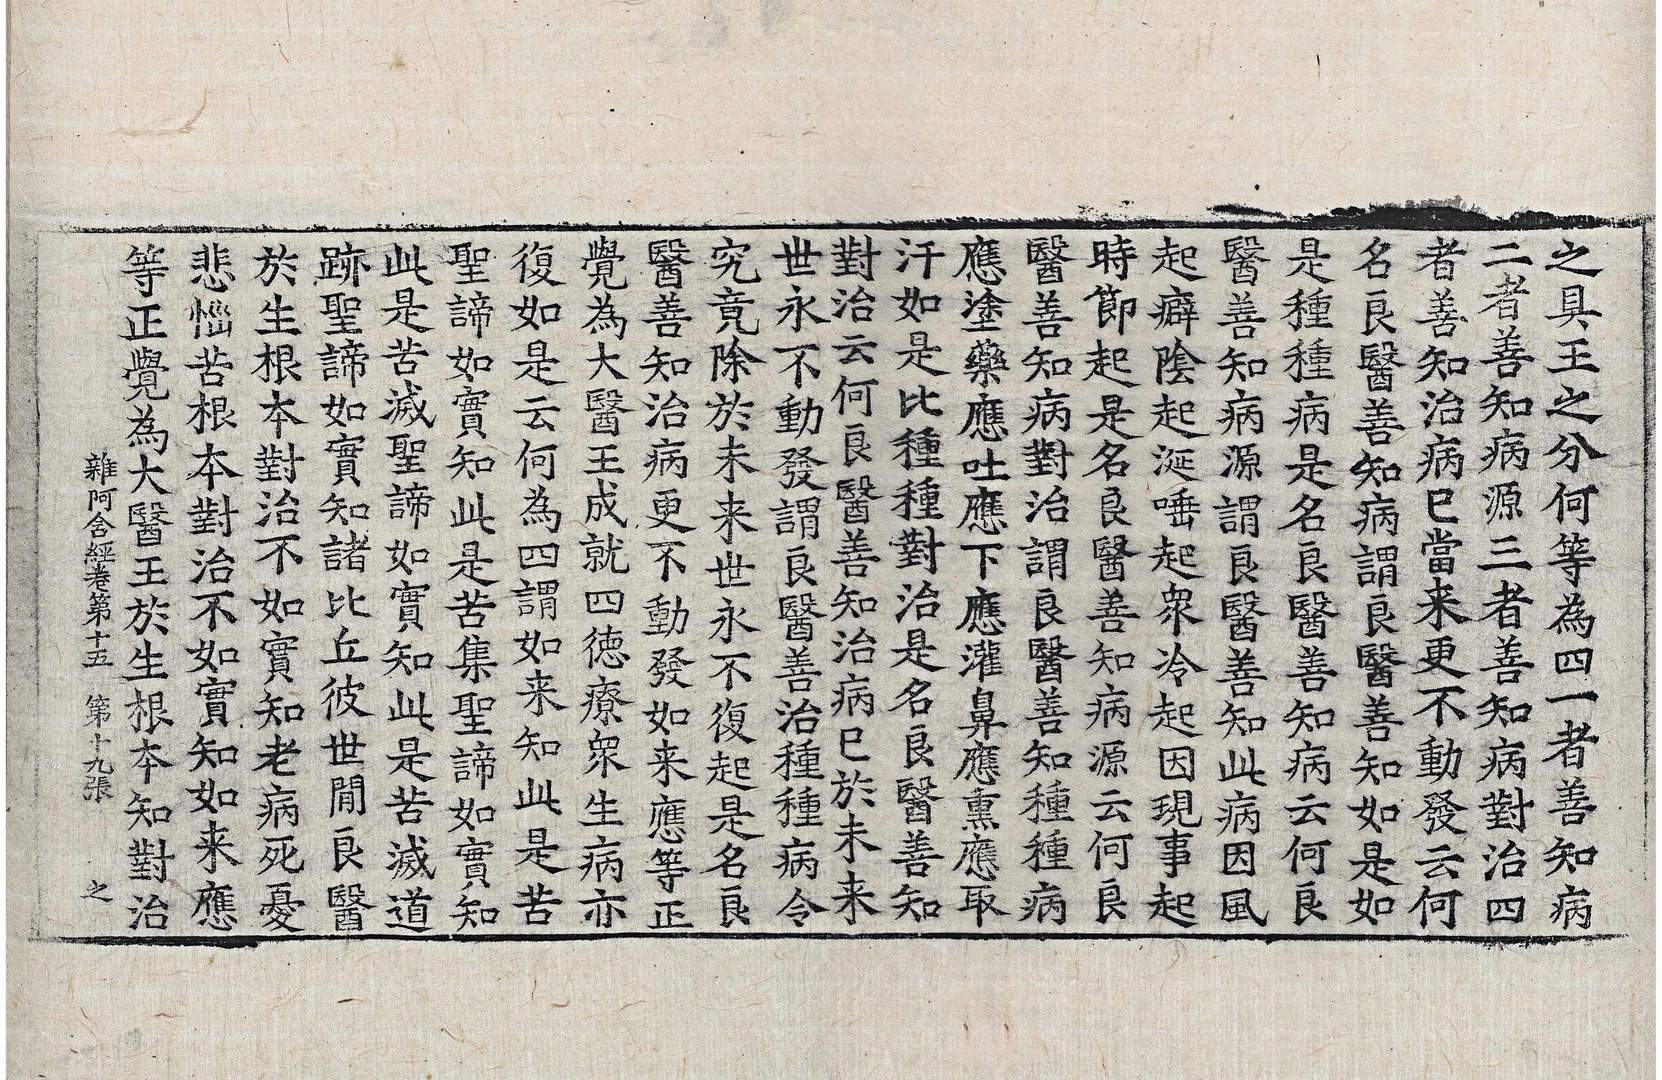 之具王之分何等為四一者善知病
二者善知病源三者善知病對治四
者善知治病已當来更不動發云何
名良醫善知病謂良醫善知如是如
是種種病是名良醫善知病云何良
醫善知病源謂良醫善知此病因風
起癖陰起涎唾起衆冷起因現事起
時節起是名良醫善知病源云何良
醫善知病對治謂良醫善知種種病
應塗藥應吐應下應灌鼻應熏應取
汗如是比種種對治是名良醫善知
對治云何良醫善知治病已於未来
世永不動發謂良醫善治種種病令
究竟除於未来世永不復起是名良
醫善知治病更不動發如来應等正
覺為大醫王成就四徳療衆生病亦
復如是云何為四謂如来知此是苦
聖諦如實知此是苦集聖諦如實知
此是苦滅聖諦如實知此是苦滅道
跡聖諦如實知諸比丘彼世閒良醫
於生根本對治不如實知老病死憂
悲惱苦根本對治不如實知如来應
等正覺為大醫王於生根本知對治
雜阿含經卷第十五 第十九張 之